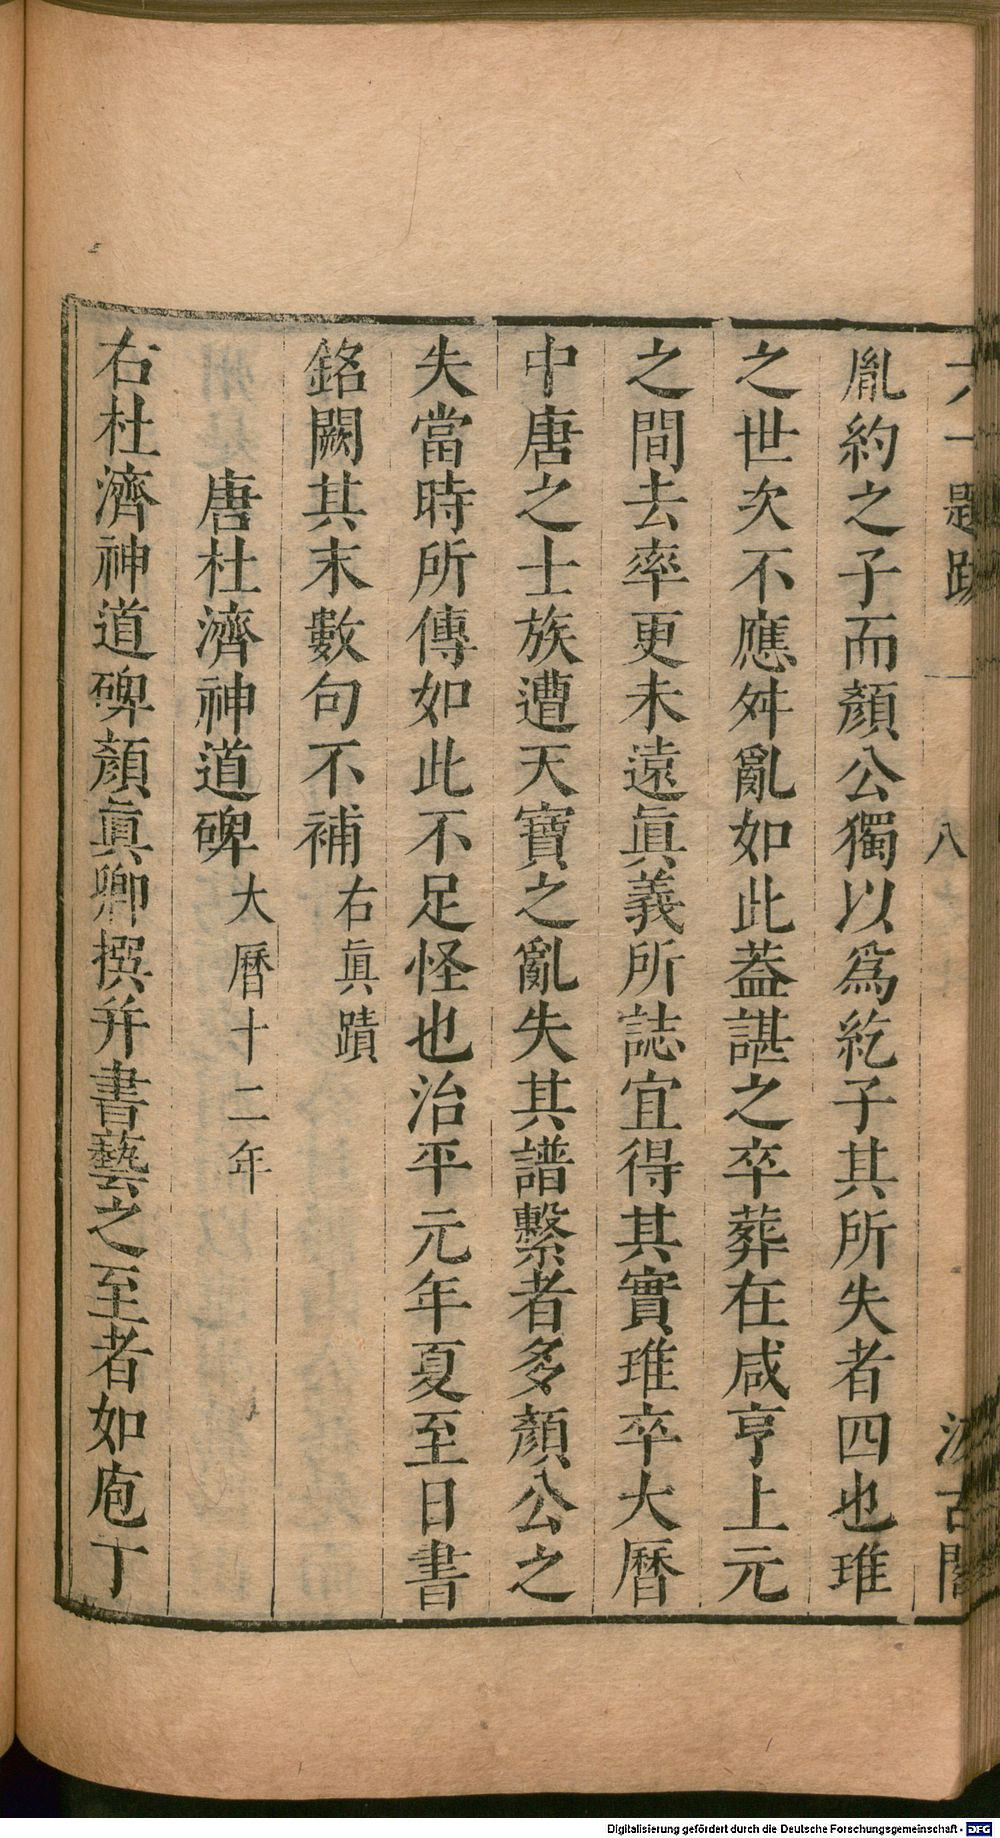 六一題跋 八 汲古閣
胤約之子而顏公獨以爲紇子其所失者四也琟
之世次不應舛亂如此葢諶之卒葬在咸亨上元
之間去率更未遠眞義所誌宜得其實琟卒大曆
中唐之士族遭天寶之亂失其譜繫者多顏公之
失當時所傳如此不足怪也治平元年夏至日書
銘闕其末數句不補右眞蹟
唐杜濟神道碑大曆十二年
右杜濟神道碑顏眞卿撰幷書藝之至者如庖丁
Digitalisierung gefördert durch die Deutsche Forschungsgemeinschaft - DFG